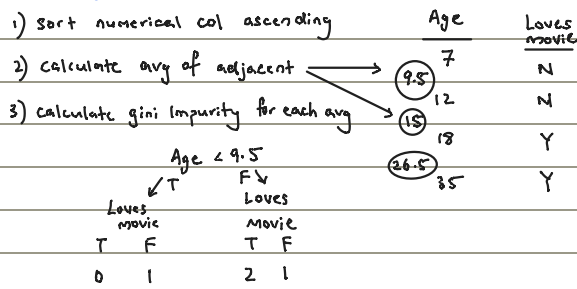 1) Sort numerical col ascending
2) Calculate avg of adjacent
3) Calculate gini impurity for each avg
Age
Loves movie
7
N
9.5
12
N
15
18
Y
26.5
35
Y
Age < 9.5
T F
Loves movie
Loves Movie
T F
T F
0 1
2 1